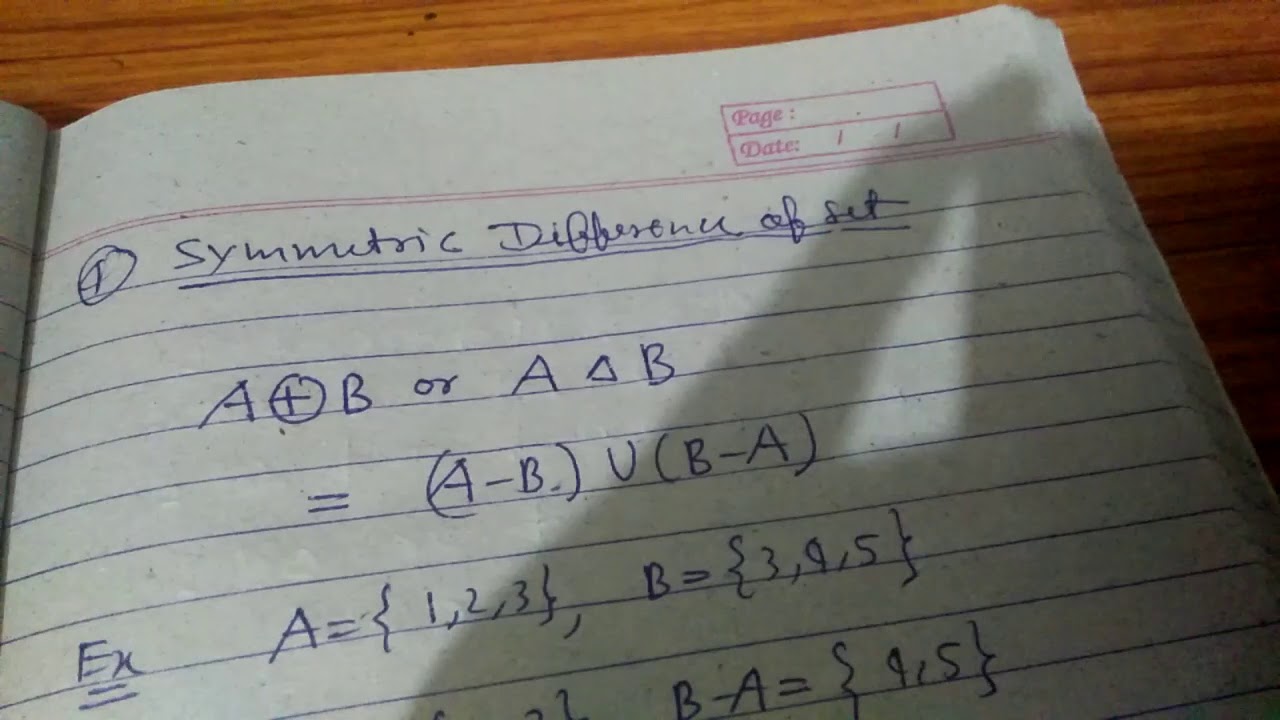 Page :
Date: / /
① Symmetric Difference of set
A ⊕ B or A Δ B
= (A-B) ∪ (B-A)
Ex A = { 1,2,3}, B = {3,4,5}
} B-A = { 4,5}